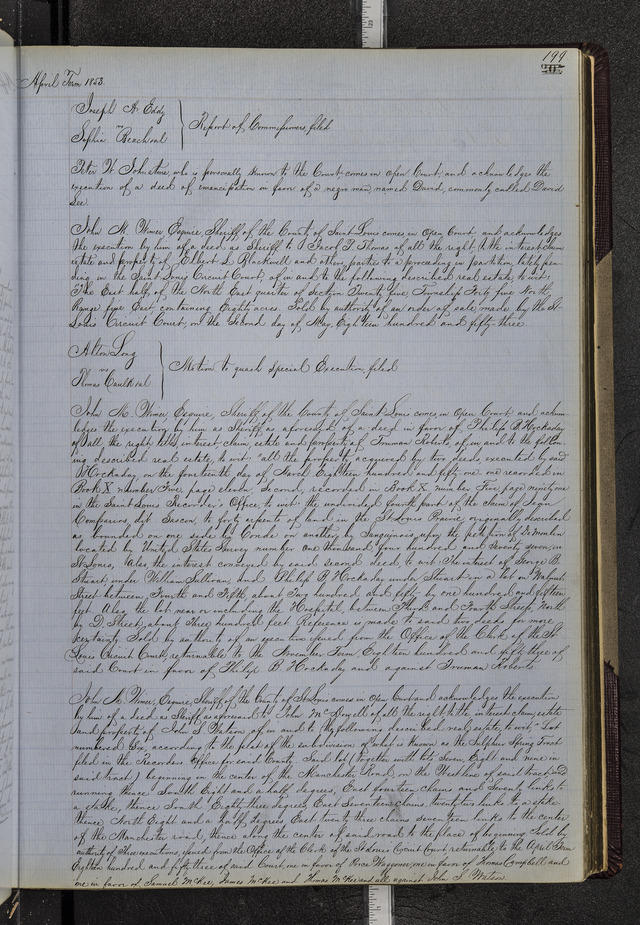 199
April Term 1853.
Joseph A. Eddy
vs
Sophia Beachoal
Report of Commissioners, filed
Peter W. Johnstone, who is personally known to the Court, comes in open Court, and acknowledges the
execution of a deed of emancipation in favor of a negro man, named David, commonly called David
Lee.
John M. Wimer, Esquire, Sheriff of the County of Saint Louis comes in Open Court and acknowledges
the execution by him of a deed as Sheriff to Jacob T. Thomas of all the right, title, interest, claim,
estate and property of Elbert D. Blackwell and other parties to a proceeding in partition, lately pen-
ding in the Saint Louis Circuit Court, of, in and to the following described real estate, to wit:
The East half of the North East quarter of Section Twenty five, Township Forty five North,
Range five East, containing Eighty acres. Sold by authority of an order of sale, made by the St.
Louis Circuit Court, on the Second day of May, Eighteen hundred and fifty-three.
Alton Long
vs
Thomas
Motion to quash Special Execution, filed
John M. Wimer Esquire, Sheriff of the County of Saint Louis comes in Open Court, and acknow-
ledges the execution by him as Sheriff as aforesaid of a deed in favor of Philip B. Hockaday
of all the right, title, interest, claim, estate and property of Truman Roberts, of, in and to the follow-
ing described real estate, to wit: "all the property acquired by two deeds executed by said
Hockaday, on the fourteenth day of March Eighteen hundred and fifty one, one recorded in
Book X number Five page eleven, Second, recorded in Book X number Five, page ninety one
in the Saint Louis Recorder's Office, to wit: the undivided fourth part of the claim of Jean
to forty arpents of land in the St. Louis Prairie, originally described
as bounded on one side by Conde on another, by Sanguinois, upon the petition of
located by United States Survey number one thousand four hundred and seventy seven, in
St. Louis, Also, the interest conveyed by said second deed, to wit: the interest of George B.
Stuart under William Sullivan, and Philip B. Hockaday under Stuart in a lot on Walnut
Street between Fourth and Fifth, about Two hundred and fifty by one hundred and fifteen
feet. Also, the lot near or including the Hospital, between Third and Fourth Streets, North
by D. Street, about Three hundred feet Reference is made to said two deeds for more
certainty. Sold by authority of an execution issued from the Office of the Clerk of the St.
Louis Circuit Court, returnable to the November Term Eighteen hundred and fifty of
said Court in favor of Philip B. Hockaday and against Truman Roberts.
John M. Wimer, Esquire, Sheriff of the County of St. Louis comes in Open Court and acknowledges the execution
by him of a deed as Sheriff as aforesaid to John McDowell of all the right, title, interest, claim, estate
and property of John S. Watson of, in and to the following described real estate, to wit: Lot
numbered Six, according to the plat of the subdivision of what is known as the Sulphur Spring Tract
filed in the Recorders Office for said County. Said lot (together with lots Seven, Eight and nine in
said tract) beginning in the center of the Manchester Road, on the West line of said tract and
running thence South Eight and a half degrees, East fourteen chains and Seventy links to
a stake, thence South Eighty three degrees, East Seventeen chains, twenty two links to a stake
thence North Eight and a half degrees, East twenty three chains seventeen links to the center
of the Manchester road, thence along the center of said road to the place of beginning. Sold by
authority of Three executions, issued from the Office of the Clerk of the St. Louis Circuit Court, returnable to the April Term
Eighteen hundred and fifty three of said Court, one in favor of Waggoner, one in favor of Thomas Campbell and
one in favor of Samuel McKee, James McKee and Thomas McKee and all against John S. Watson.